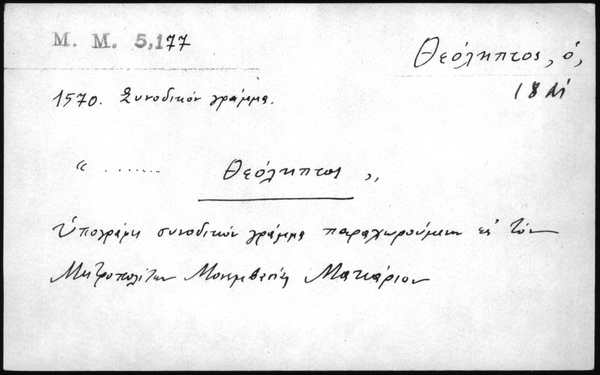 M. M. 5,177
Θεόληπτος, ὁ,
1570. Συνοδικόν γράμμα.
“ ....... Θεόληπτος „
Ὑπογράφει συνοδικόν γράμμα παραχωρούμενον εἰς τόν
Μητροπολίτην Μονεμβασίας Μακάριον